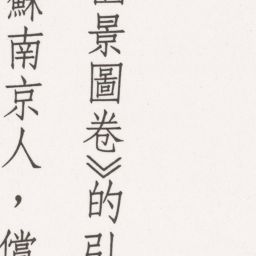 景圖卷》的引
蘇南京人，償